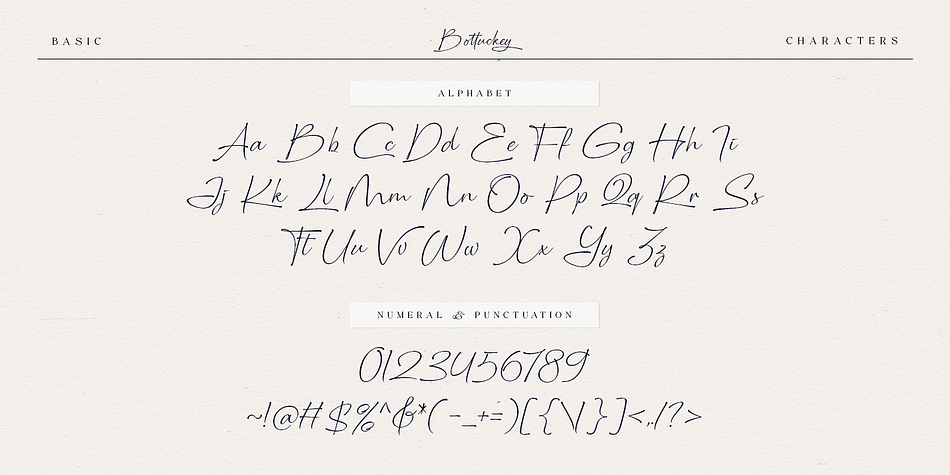 BASIC Bottuckey CHARACTERS
ALPHABET
Aa Bb Cc Dd Ee Ff Gg Hh Ii
Jj Kk Ll Mm Nn Oo Pp Qq Rr Ss
Tt Uu Vv Ww Xx Yy Zz
NUMERAL & PUNCTUATION
0123456789
~!@#$%^&*(-_+=)[{\|}]<,./?>